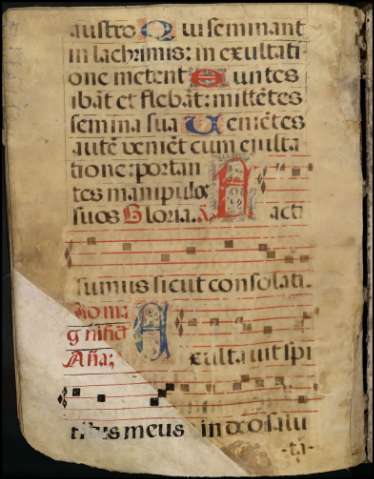 austro Qui seminant
in lachrimis: in exultati
one metent Euntes
ibāt et flebāt: mittētes
semina sua Ueniētes
autē veniēt cum exulta
tione: portan
tes manipulos
suos Gloria. ā Facti
sumus sicut consolati.
gnificat
Aña; Exultavit spi
ritus meus in deo salu
-ta-